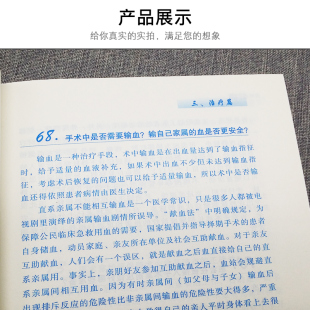 产品展示
给你真实的实拍,满足您的想象
三、治疗篇
68. 手术中是否需要输血?输自己家属的血是否更安全?
输血是一种治疗手段,术中输血是在出血量达到了输血指征
时,给予适量的血液补充,如果术中出血不少但未达到输血指
征,考虑术后恢复的问题也可以给予适量输血,所以术中是否输
血还得依照患者病情由医生决定。
直系亲属不能相互输血是一个医学常识,只是很多人都被电
视剧里演绎的亲属输血剧情所误导。“献血法”中明确规定,为
保障公民临床急救用血的需要,国家提倡并指导择期手术的患者
自身储血,动员家庭、亲友所在单位及社会互助献血。对于亲友
互助献血,人们会有一个误区,就是献血之后血直接给自己的直
系亲属用。事实上,亲朋好友参加互助献血之后,血站会规避直
系亲属间相互用血。因为有时亲属间(如父母与子女)输血后
出现排斥反应的危险性比非亲属间输血的危险性要大得多。严重
得自己的亲人平时身体看上去很